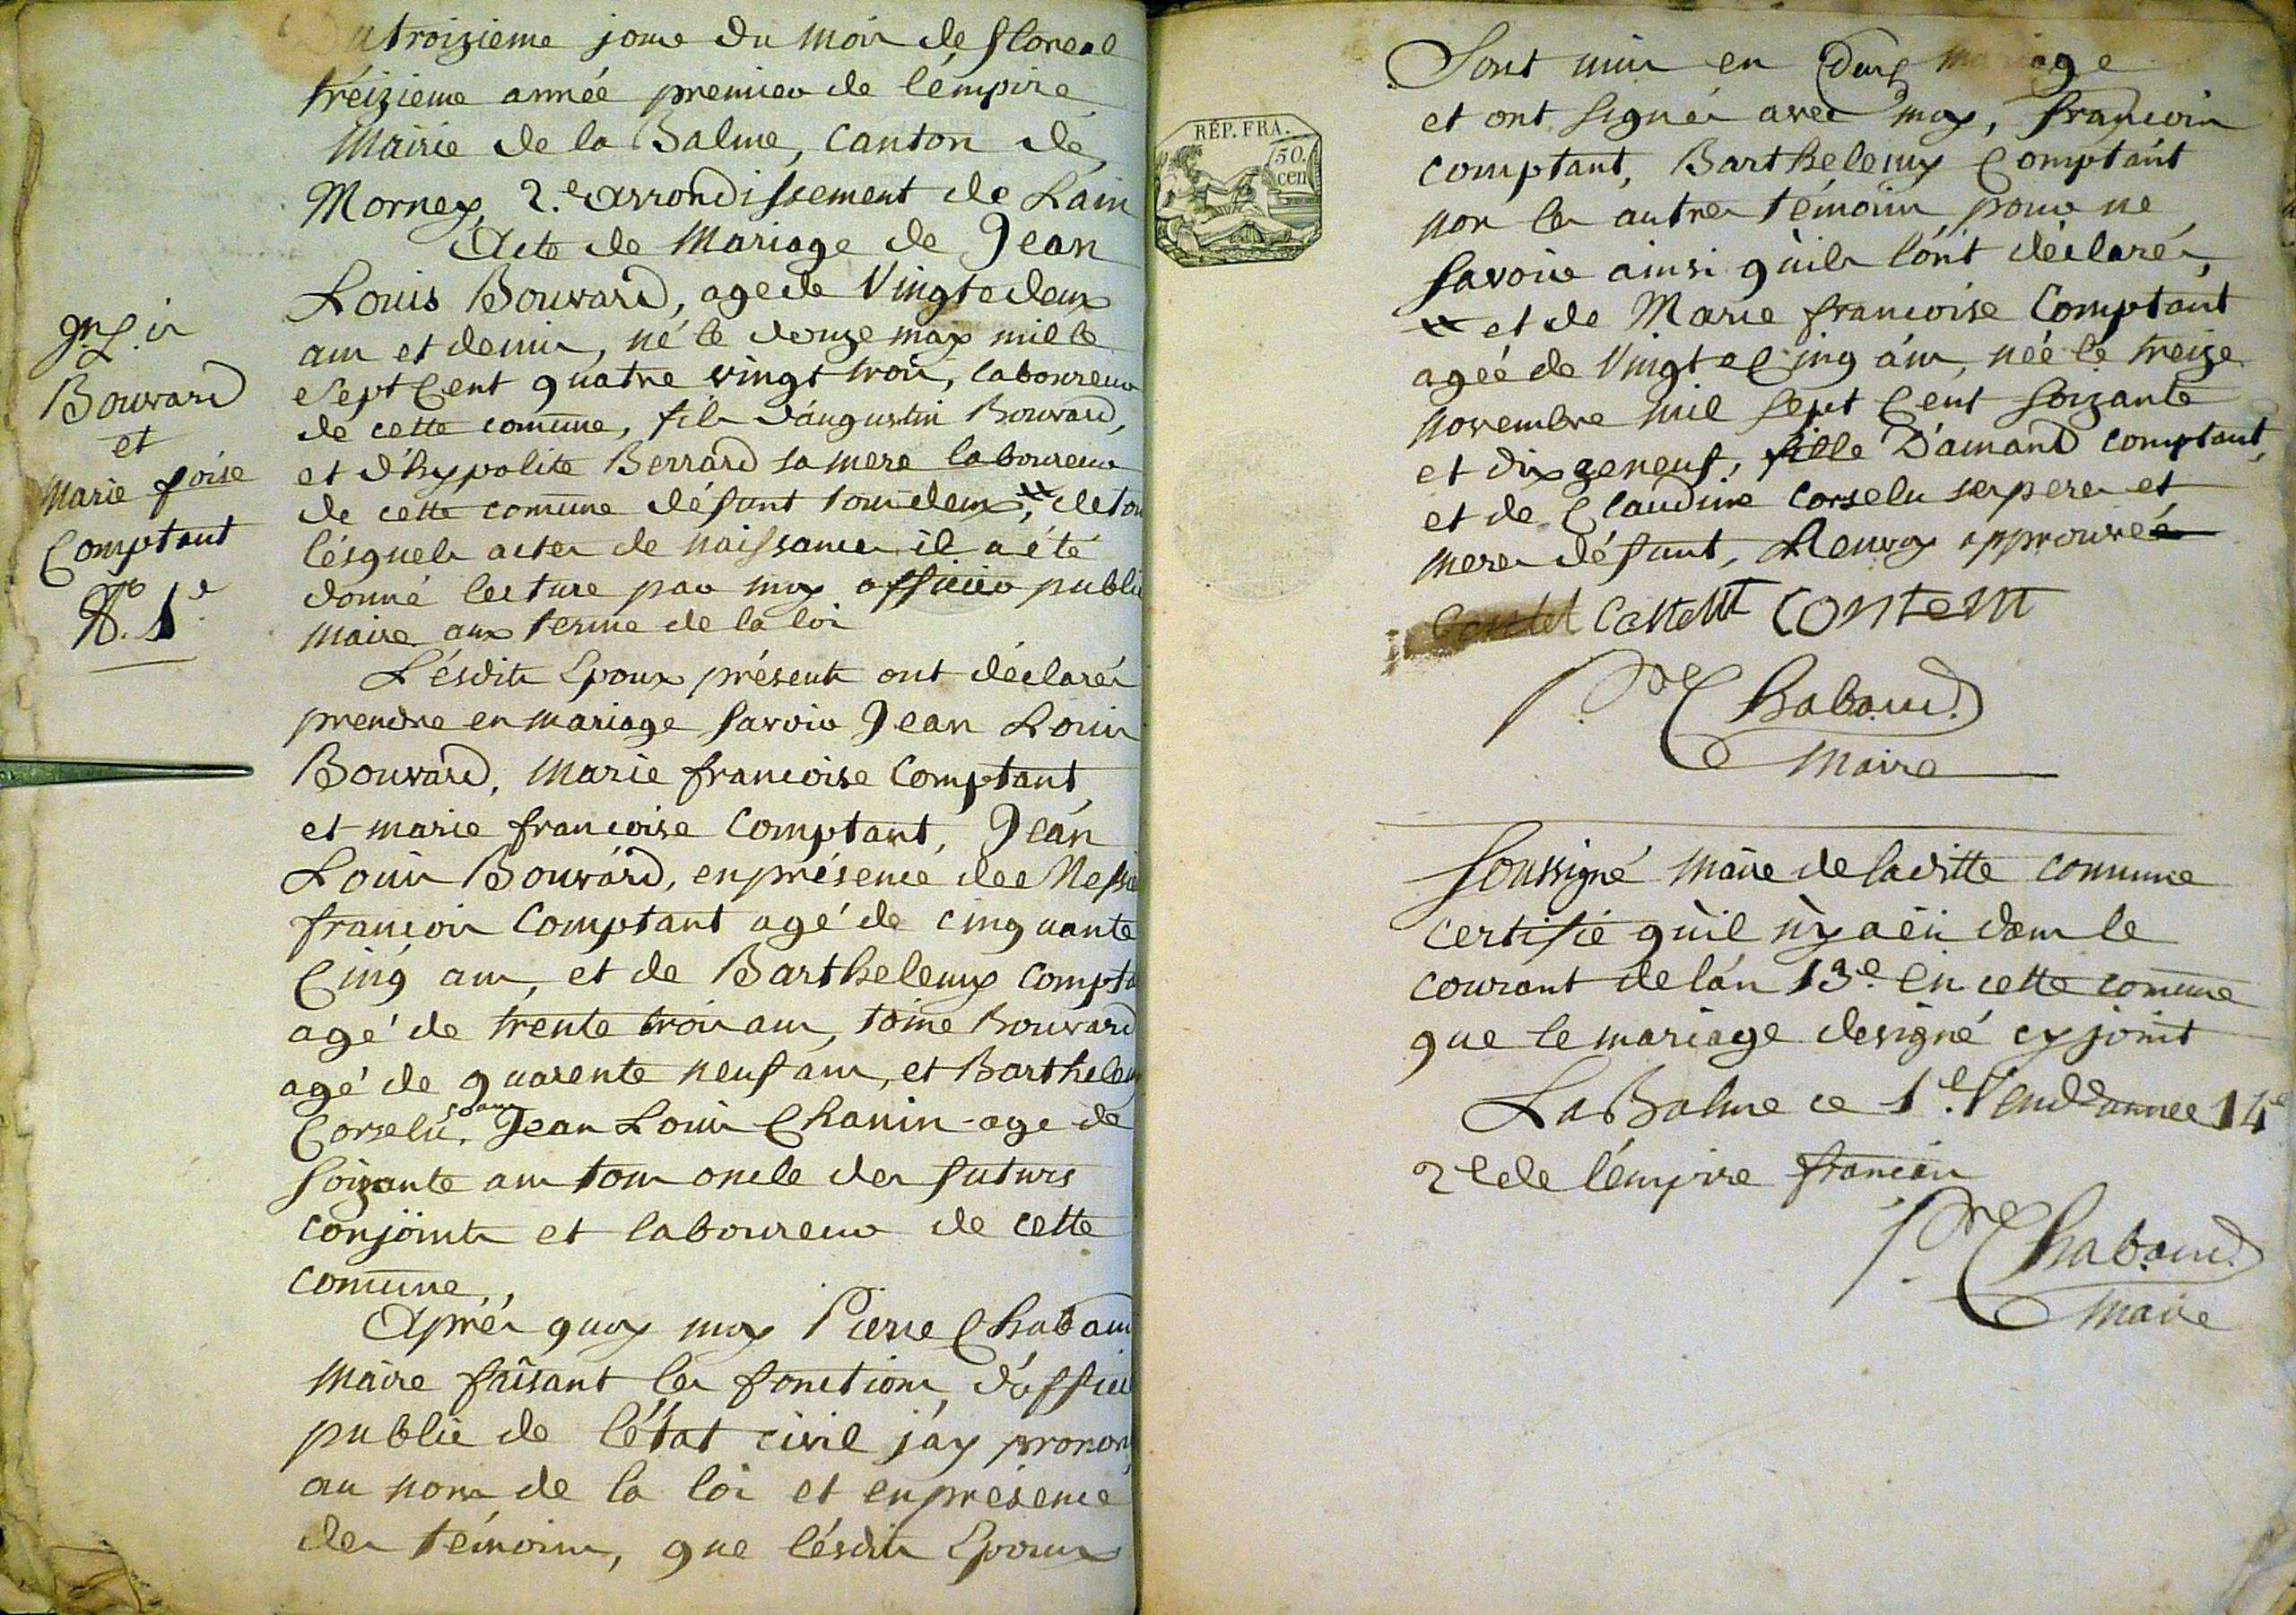 troizieme jour du mois de floreal
tréizieme année premier de l'émpire
Mairie de la Balme, Canton de
Mornex, 2.e arrondissement de Lain
Acte de Mariage de Jean
Louis Bouvard, age de Vingt e deux
ans et demis, né le douze may mille
sept Cent quatre vingt trois, laboureur
de cette comune, fils d'augustin Bouvard,
et d'hypolite Berrard sa mere laboureur
de cette comune défunt tous deux, de tou
lésquels actes de naissances il a été
donné lecture par moy officier public
maire aux terme de la loi
Lésdits Epoux présents ont déclarés
prendre en mariage savoir Jean Louis
Bouvard, Marie francoise Comptant
et marie francoise Comptant, Jean
Louis Bouvard, en présence dee Messi
françois Comptant agé de cinquante
Cinq ans, et de Barthelemy Compta
agé de trente trois ans, toine Bouvard
agé de quarente neuf ans, et Barthelemy
Corselu, 50 ans Jean Louis Chanin age de
soizante ans tous oncle des futurs
conjoints et laboureur de cette
comune,
Aprés quoy moy Pierre Chabaud
Maire faisant les fonctions, d'officie
public de l'état civil j'ay pronon
au nom de la loi et en présence
des témoins, que lésdits Epoux
Jn. L.is
Bouvard
et
Marie foise
Comptant
No. 1.e
RÉP. FRA.
50.
cen
Sont unis en mariage
et ont signés avec moy, françois
comptant, Barthelemy Comptant
non les autres témoins pour ne
savoir ainsi qu'ils l'ont déclarés,
et de Marie francoise Comptant
agéé de Vingt e Cinq ans, née le treize
novembre mil sept Cent soizante
et dix ze neuf, fille D'amand comptant,
et de Claudine Corselu ses peres et
meres défunt, Renvoy approuvéé
Contet Contemt Contemt
P.re Chabaud.
Maire
Soussigné Maire de laditte comune
certifié qu'il n'y a eü dans le
courant de l'an 13.e en cette comune
que le mariage designé cy joint
La Balme ce 1.e Vend.re annee 14e
2e de l'émpire francais
P.re Chabaud.
Maire